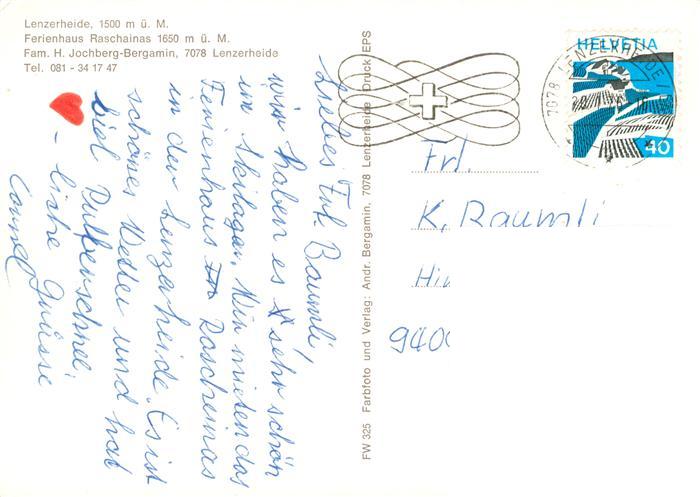 Lenzerheide, 1500 m ü. M.
Ferienhaus Raschainas 1650 m ü. M.
Fam. H. Jochberg-Bergamin, 7078 Lenzerheide
Tel. 081 - 34 17 47
Liebes Frl. Baumli,
wir haben es sehr schön
im Skilager. Wir mieten das
Ferienhaus Raschainas
in der Lenzerheide. Es ist
schönes Wetter und hat
viel Pulverschnee.
- liche Grüsse
FW 325 Farbfoto und Verlag: Andr. Bergamin, 7078 Lenzerheide Druck: EPS
HELVETIA
40
7078 LENZERHEIDE
Frl.
K. Baumli
Hi
940